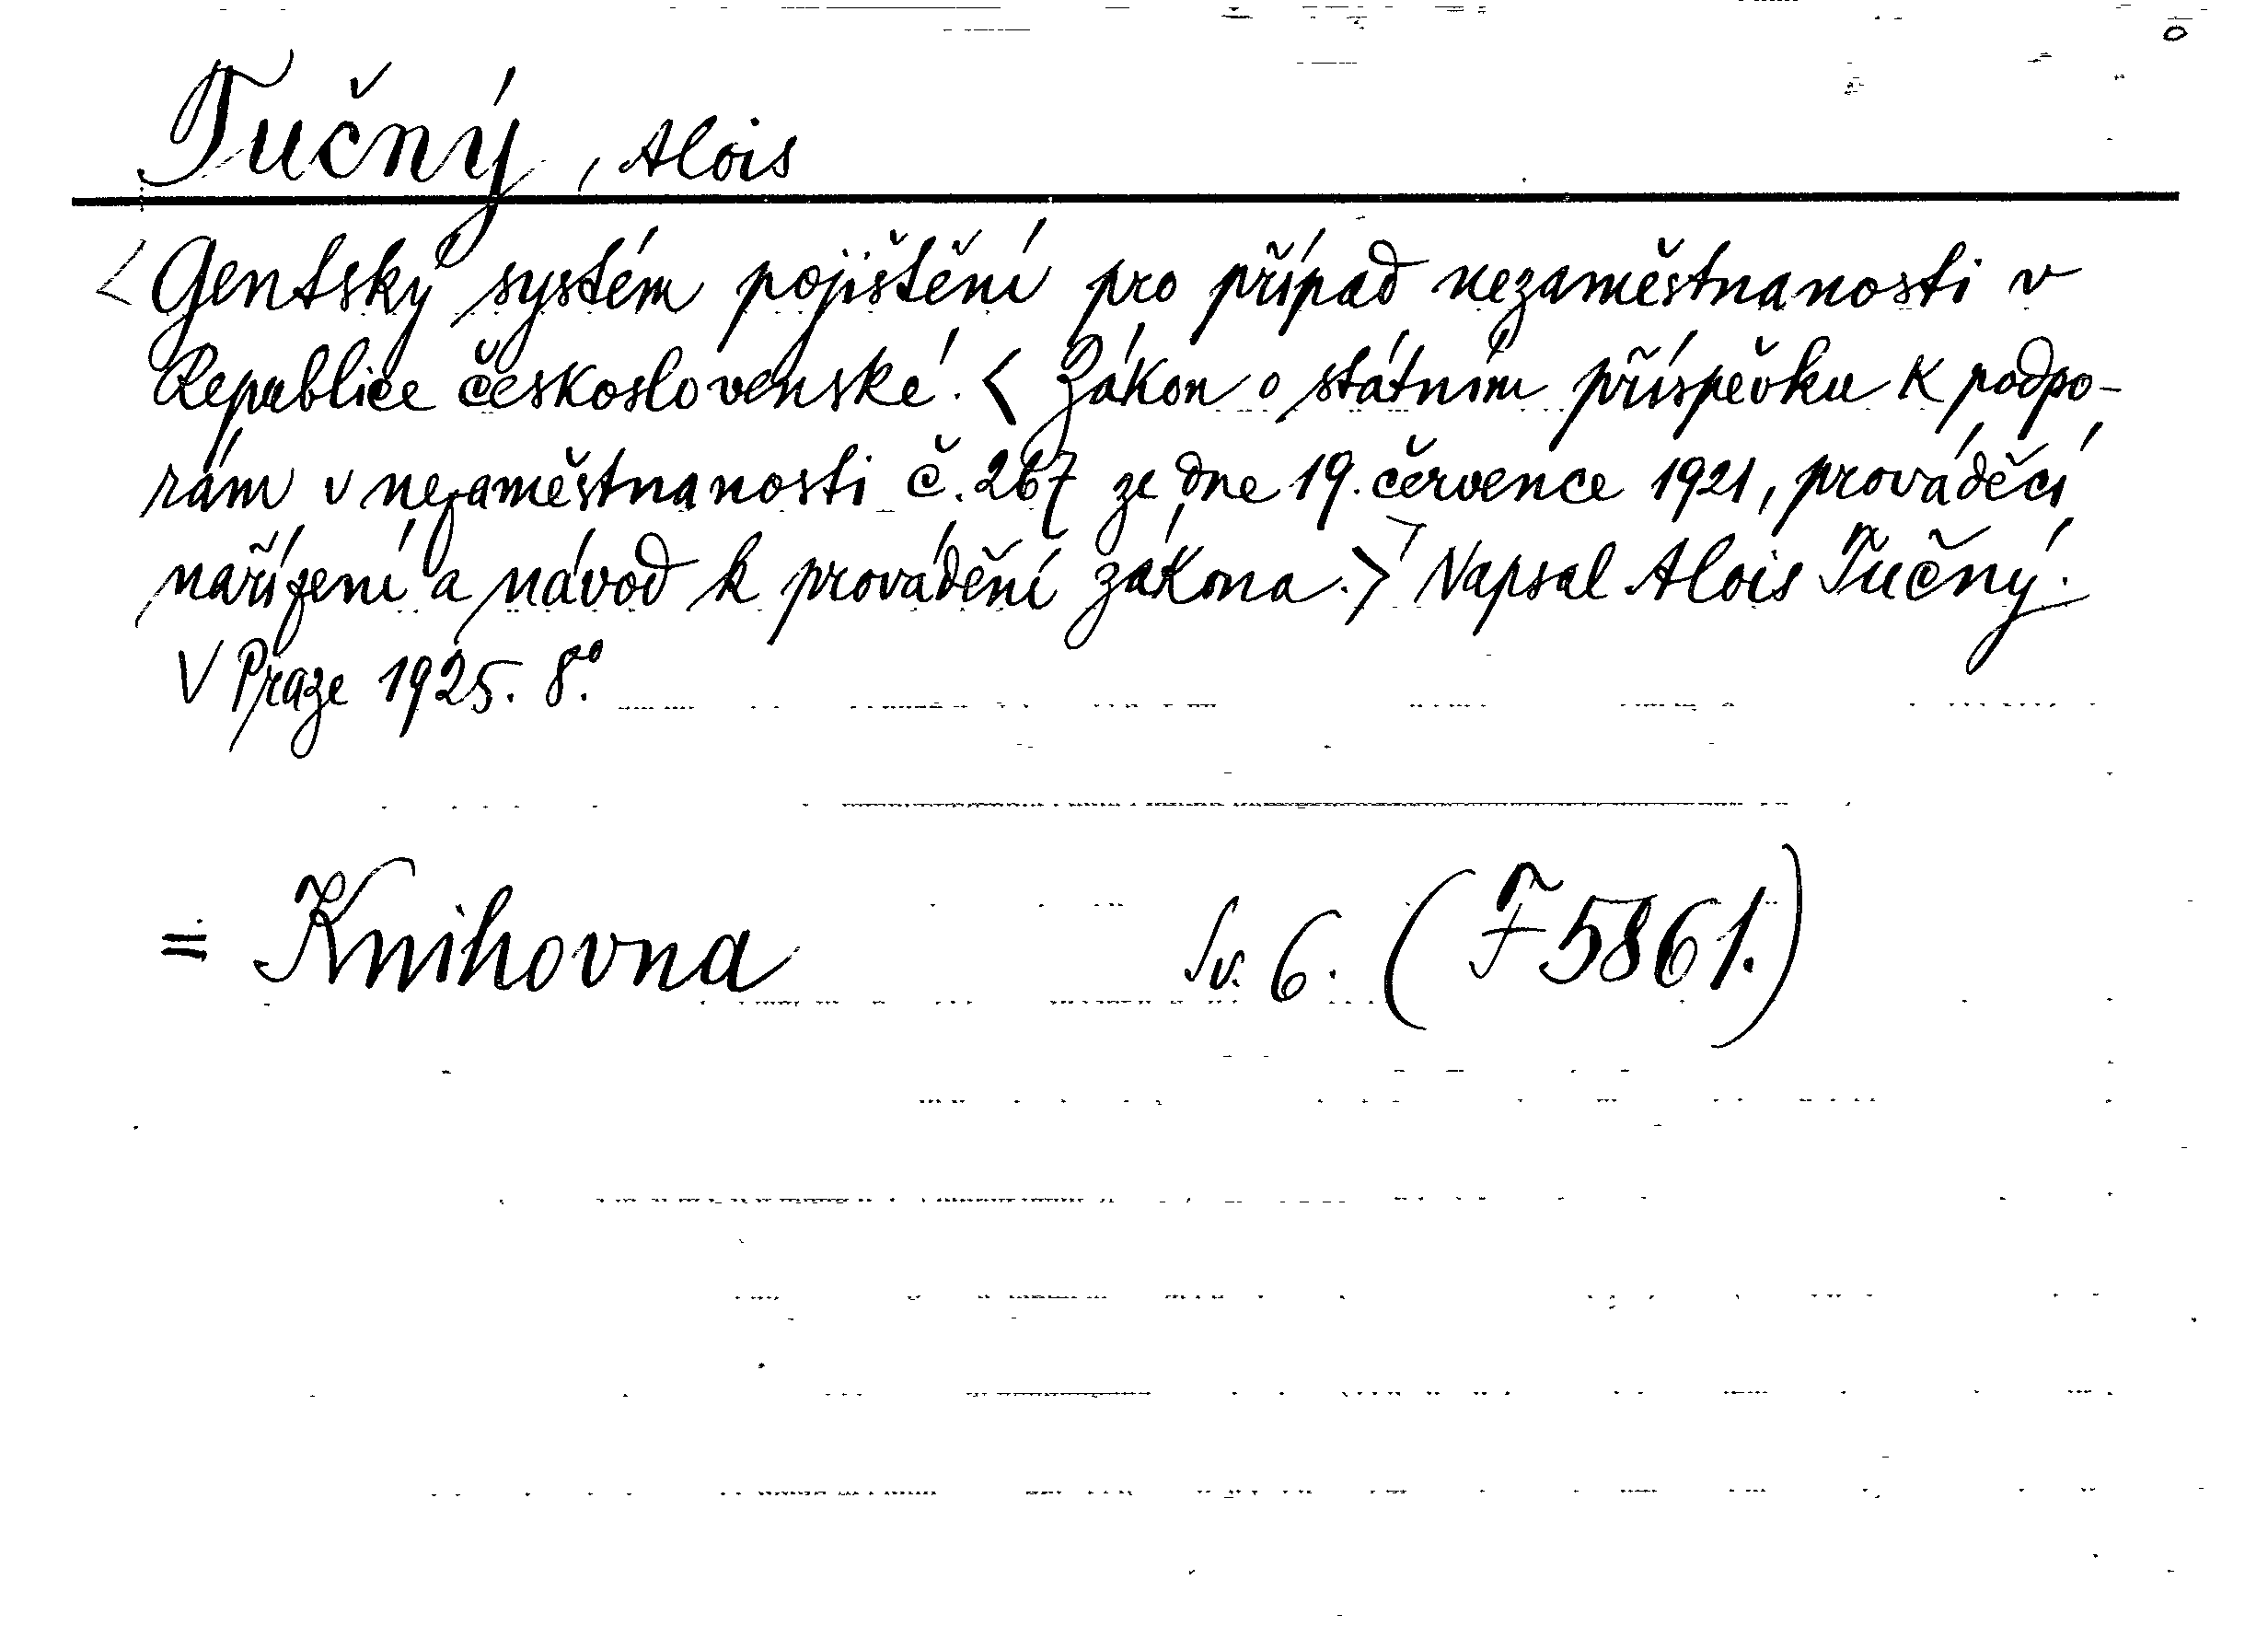 Tučný, Alois
<Gentský systém pojištění pro případ nezaměstnanosti v
Republice československé. <Zákon o státním příspěvku k podpo-
rám v nezaměstnanosti č. 267 ze dne 19. července 1921, prováděcí
nařízení a návod k provádění zákona.>> Napsal Alois Tučný.
V Praze 1925. 8°.
= Knihovna Sv. 6. (F 5861.)